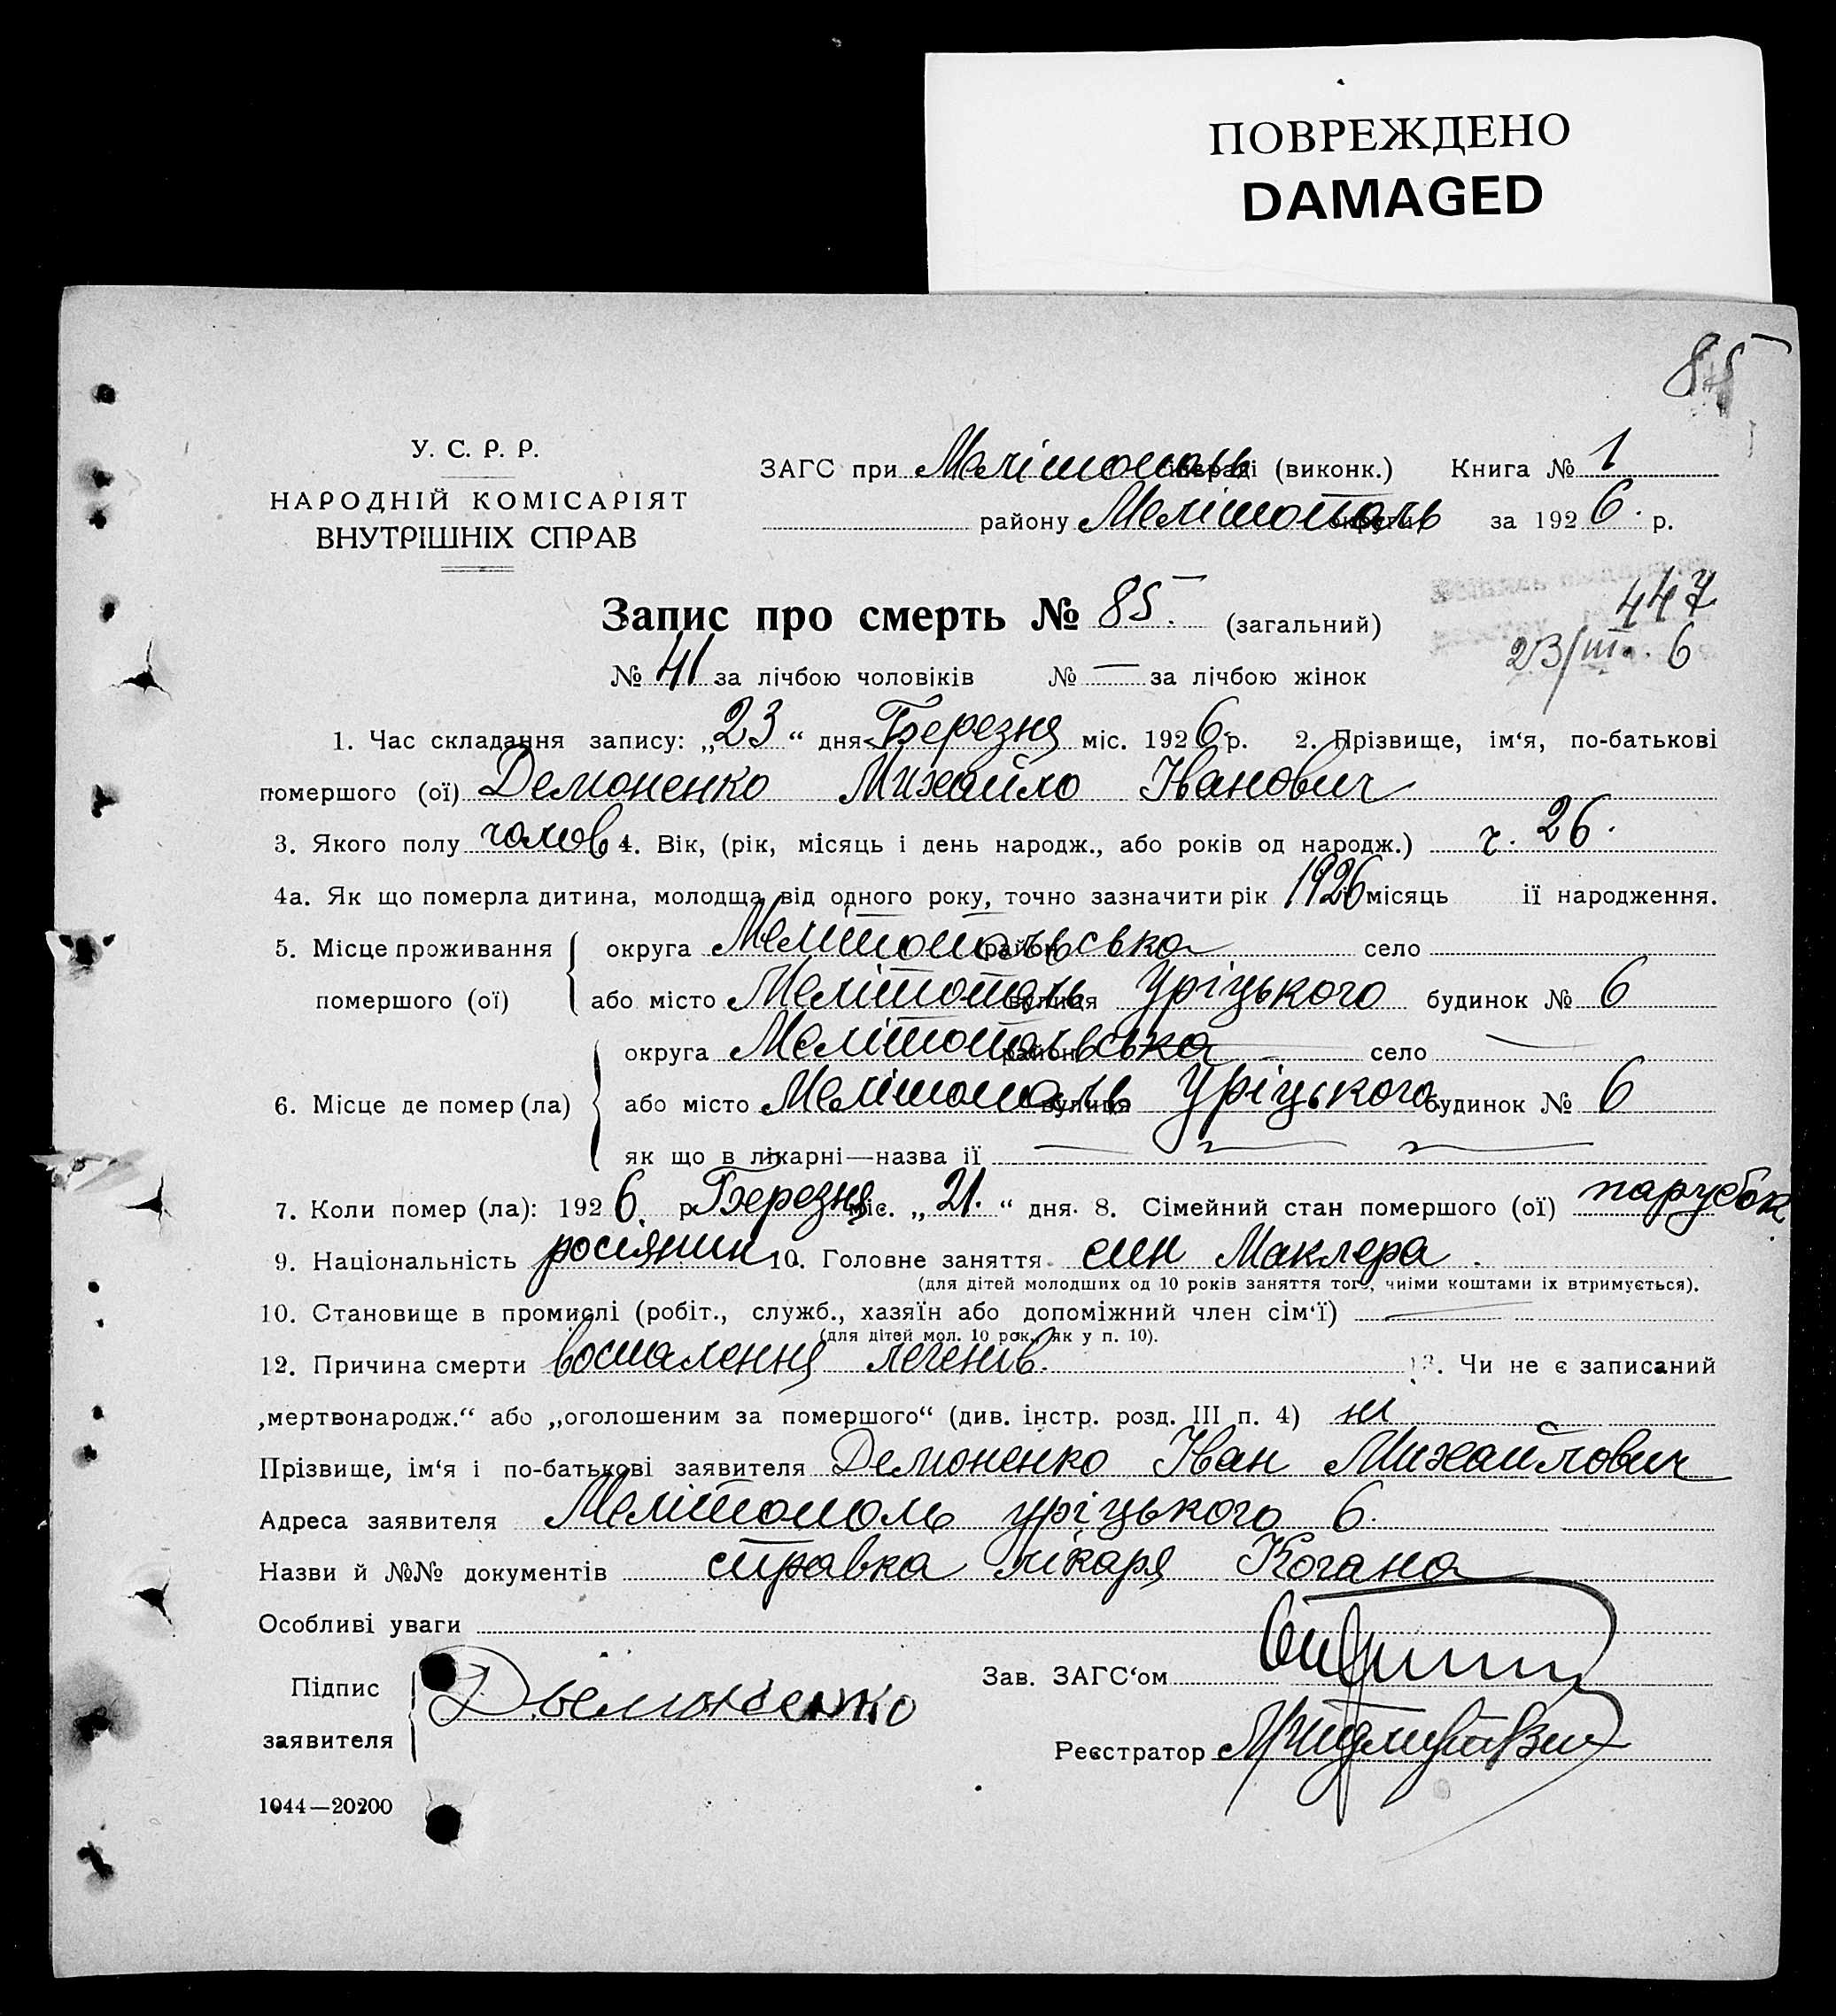 ПОВРЕЖДЕНО
DAMAGED
85
У. С. Р. Р.
НАРОДНІЙ КОМІСАРІЯТ
ВНУТРІШНІХ СПРАВ
ЗАГС при Мелітополь (виконк.) Книга № 1
району Мелітополь округи за 1926. р.
Запис про смерть № 85. (загальний)
447
№ 41 за лічбою чоловіків № — за лічбою жінок
23/III. 6
1. Час складання запису: „23“ дня Березня міс. 1926 р. 2. Прізвище, ім‘я, по-батькові
помершого (ої) Демоненко Михайло Іванович
3. Якого полу чолов 4. Вік, (рік, місяць і день народж., або років од народж.) 26.
4а. Як що померла дитина, молодща від одного року, точно зазначити рік 1926 місяць її народження.
5. Місце проживання помершого (ої) округа Мелітопольська район село
або місто Мелітополь вулиця Уріцького будинок № 6
6. Місце де помер (ла) округа Мелітопольська район — село —
або місто Мелітополь вулиця Уріцького будинок № 6
як що в лікарні—назва її —
7. Коли помер (ла): 1926. р. Березня міс. „21.“ дня. 8. Сімейний стан помершого (ої) парубок
9. Національність росіянин 10. Головне заняття син Маклера
(для дітей молодших од 10 років заняття того, чиїми коштами їх втримується).
10. Становище в промислі (робіт., служб., хазяїн або допоміжний член сім‘ї) —
(для дітей мол. 10 рок., як у п. 10).
12. Причина смерти воспалення легенів. 13. Чи не є записаний
„мертвонародж.“ або „оголошеним за помершого“ (див. інстр. розд. III п. 4) ні
Прізвище, ім‘я і по-батькові заявителя Демоненко Іван Михайлович
Адреса заявителя Мелітополь уріцького 6.
Назви й №№ документів справка лікаря Когана
Особливі уваги
Підпис заявителя Демоненко
Зав. ЗАГС‘ом
Реєстратор
1044—20200